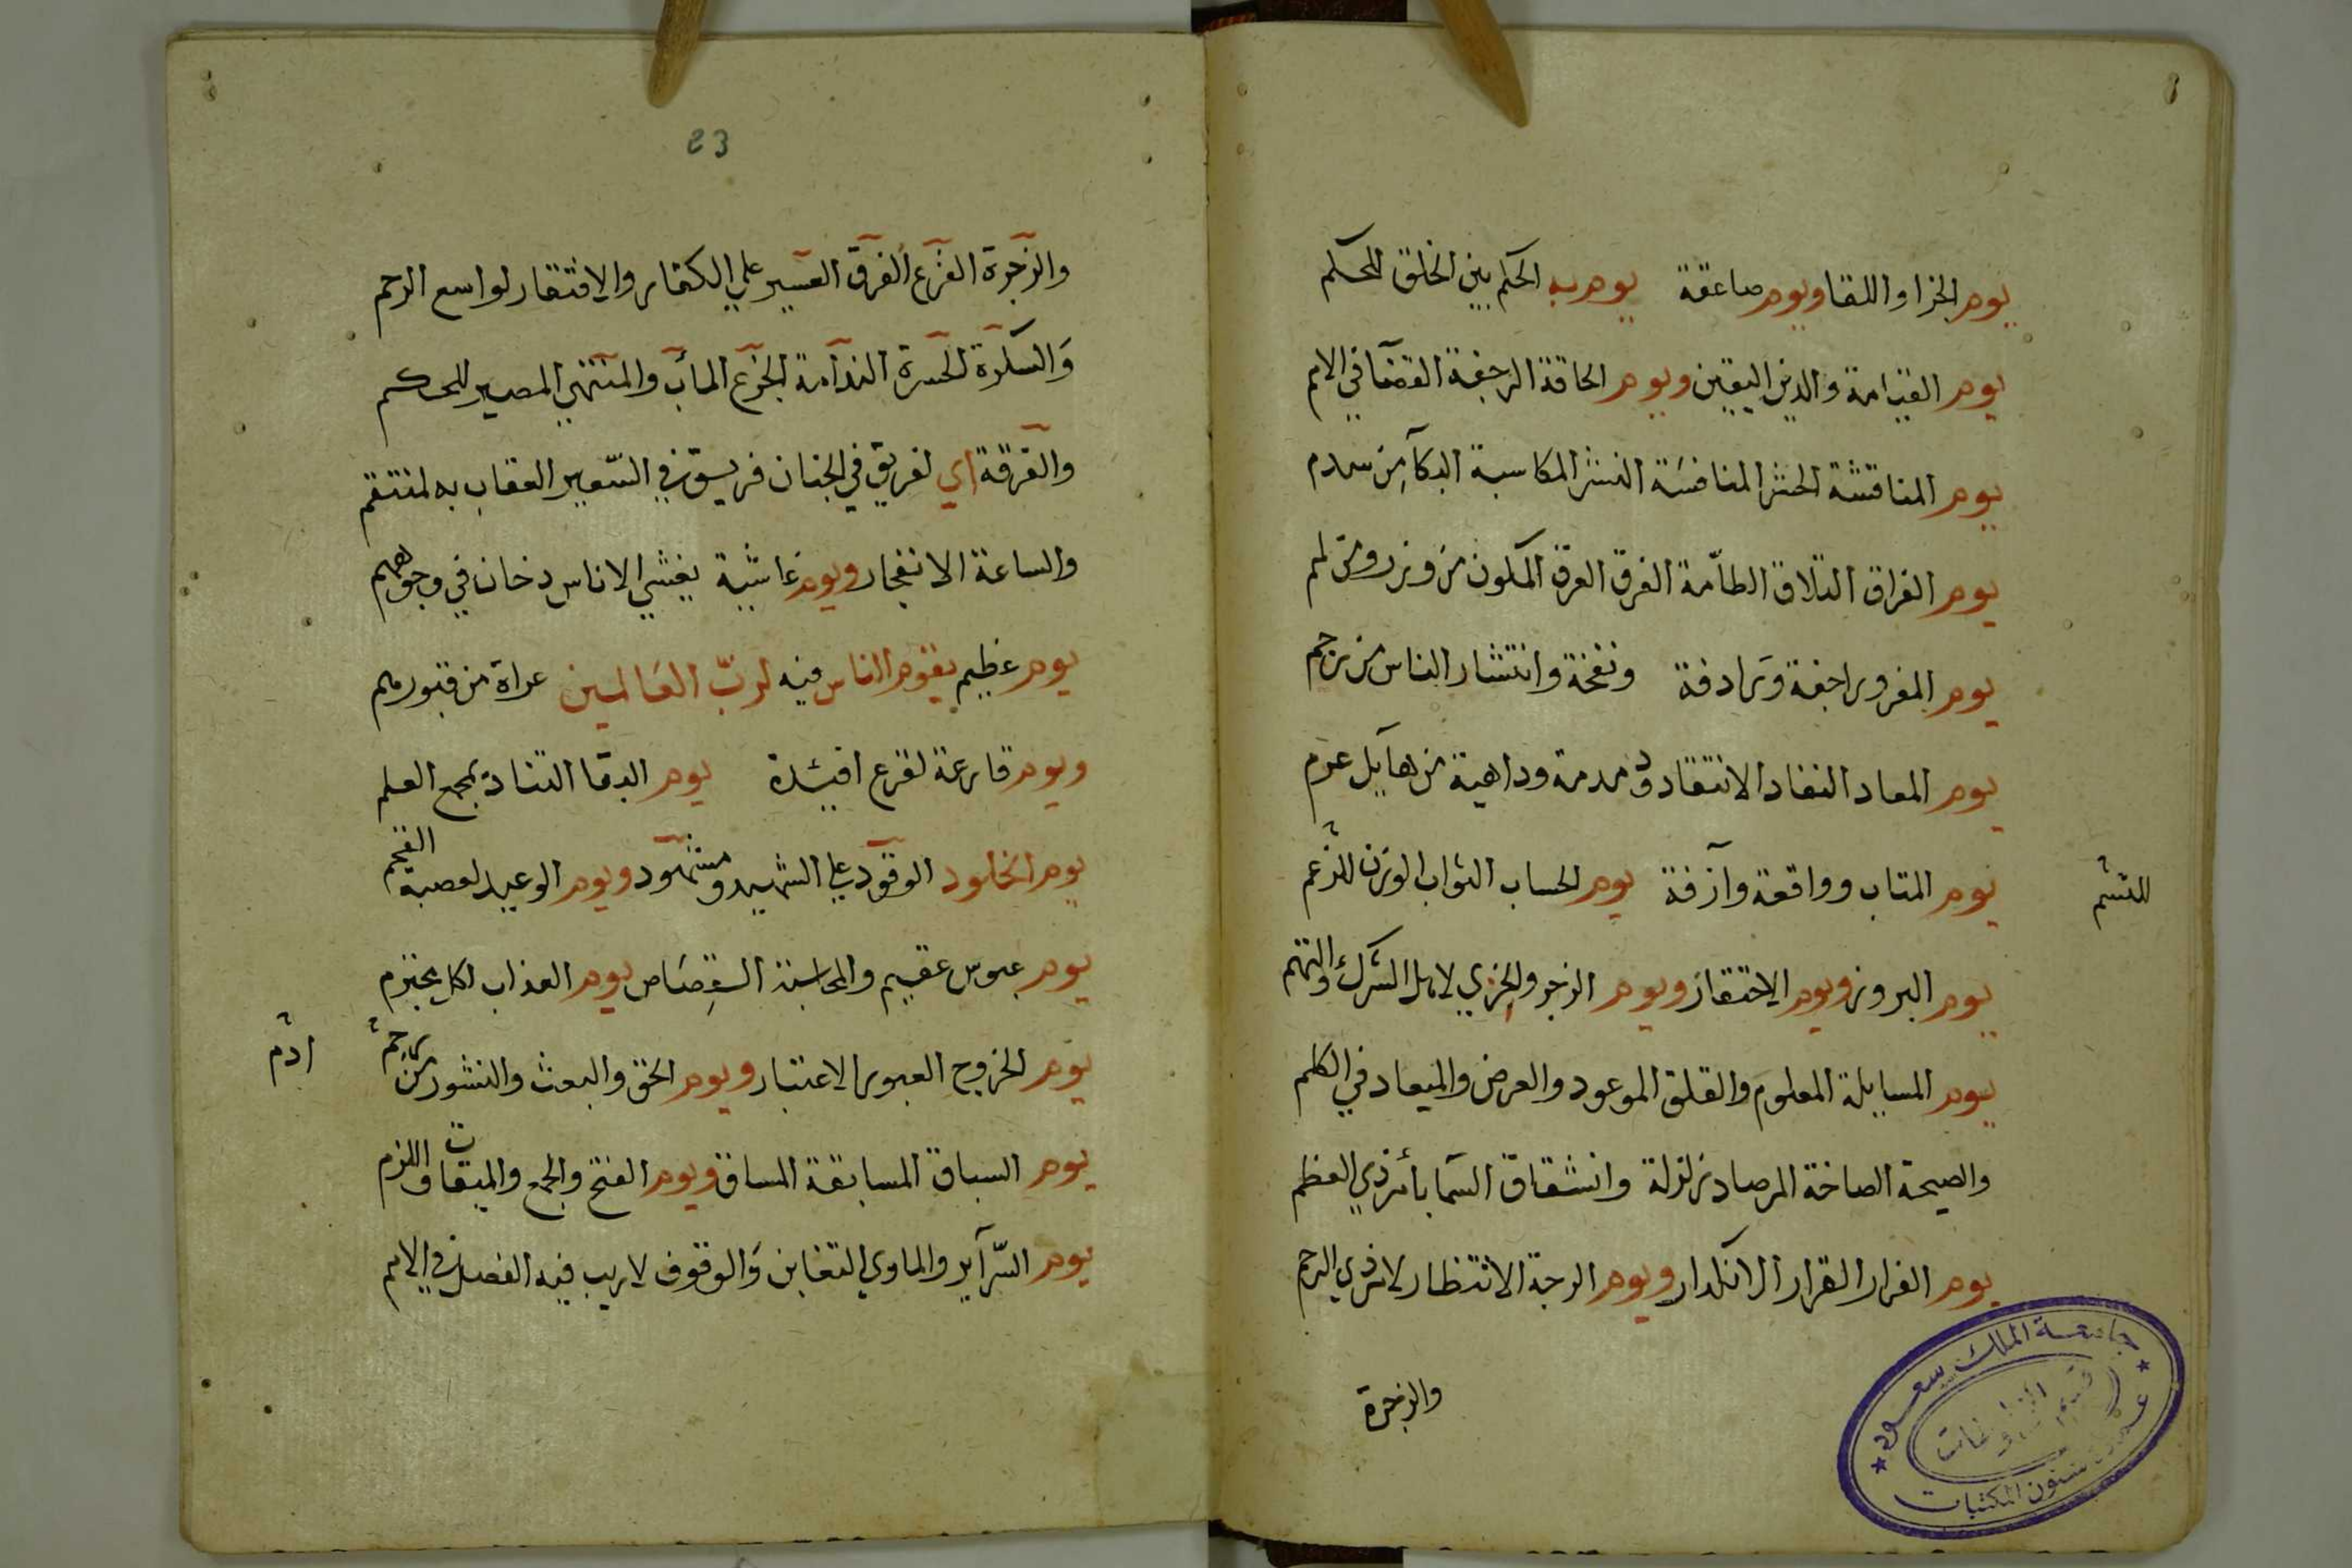 يوم الجزا واللقا ويوم صاعقة يوم به الحكم بين الخلق للحكم
يوم القيامة والدين اليقين ويوم الحاقة الرجفة القضآ في الامم
يوم المناقشة الحشر المنافسة النشر المكاسبة البكآ من سدم
يوم الفراق التلاق الطآمة الفرق العرق المكلون من وزر ومن لمم
يوم المفر وراجفة ورادفة ونفخة وانتشار الناس من رجم
يوم المعاد النفاد الانتقاد ودمدمة وداهية من هايل عرم
يوم المتاب وواقعة وآزفة يوم الحساب الثواب الوزن للزعم
للنسم
يوم البروز ويوم الاحتقاز ويوم الزجر والخزي لاهل الشرك والتهم
يوم المسايلة المعلوم والقلق الموعود والعرض والميعاد في الكلم
والصيحة الصاخة المرصاد زلزلة وانشقاق السما بأمر ذي العظم
يوم الفرار القرار الانكدار ويوم الوجة الانتظار لامر ذي الرحم
والزجرة
جامعة الملك سعود
قسم المخطوطات
عمادة شئون المكتبات
23
والزجرة الفزع الفرق العسير علي الكفار والافتقار لواسع الرحم
والسكرة الحسرة الندامة الجزع المآب والمنتهي المصير للحكم
والفرقة اي لفريق في الجنان فريق في السعير العقاب به لمنتقم
والساعة الانفجار ويوم غاشية يغشي الاناس دخان في وجوههم
يوم عظيم يقوم الناس فيه لرب العالمين عراة من قبورهم
ويوم قارعة لقرع افيدة يوم البقا التناد بجمع العلم
يوم الخلود الوقود علي الشهيد ومشهود ويوم الوعيد لعصبة الفخم
يوم عبوس عقيم والمحاسبة القصاص يوم العذاب لكل مجترم
يوم الخروج العبور الاعتبار ويوم الحق والبعث والنشور من رجم
ادم
يوم السباق المسابقة المساق ويوم الفتح والجمع والميقات واللزم
يوم السرآير والماوي التغابن والوقوف لاريب فيه الفصل في الامم